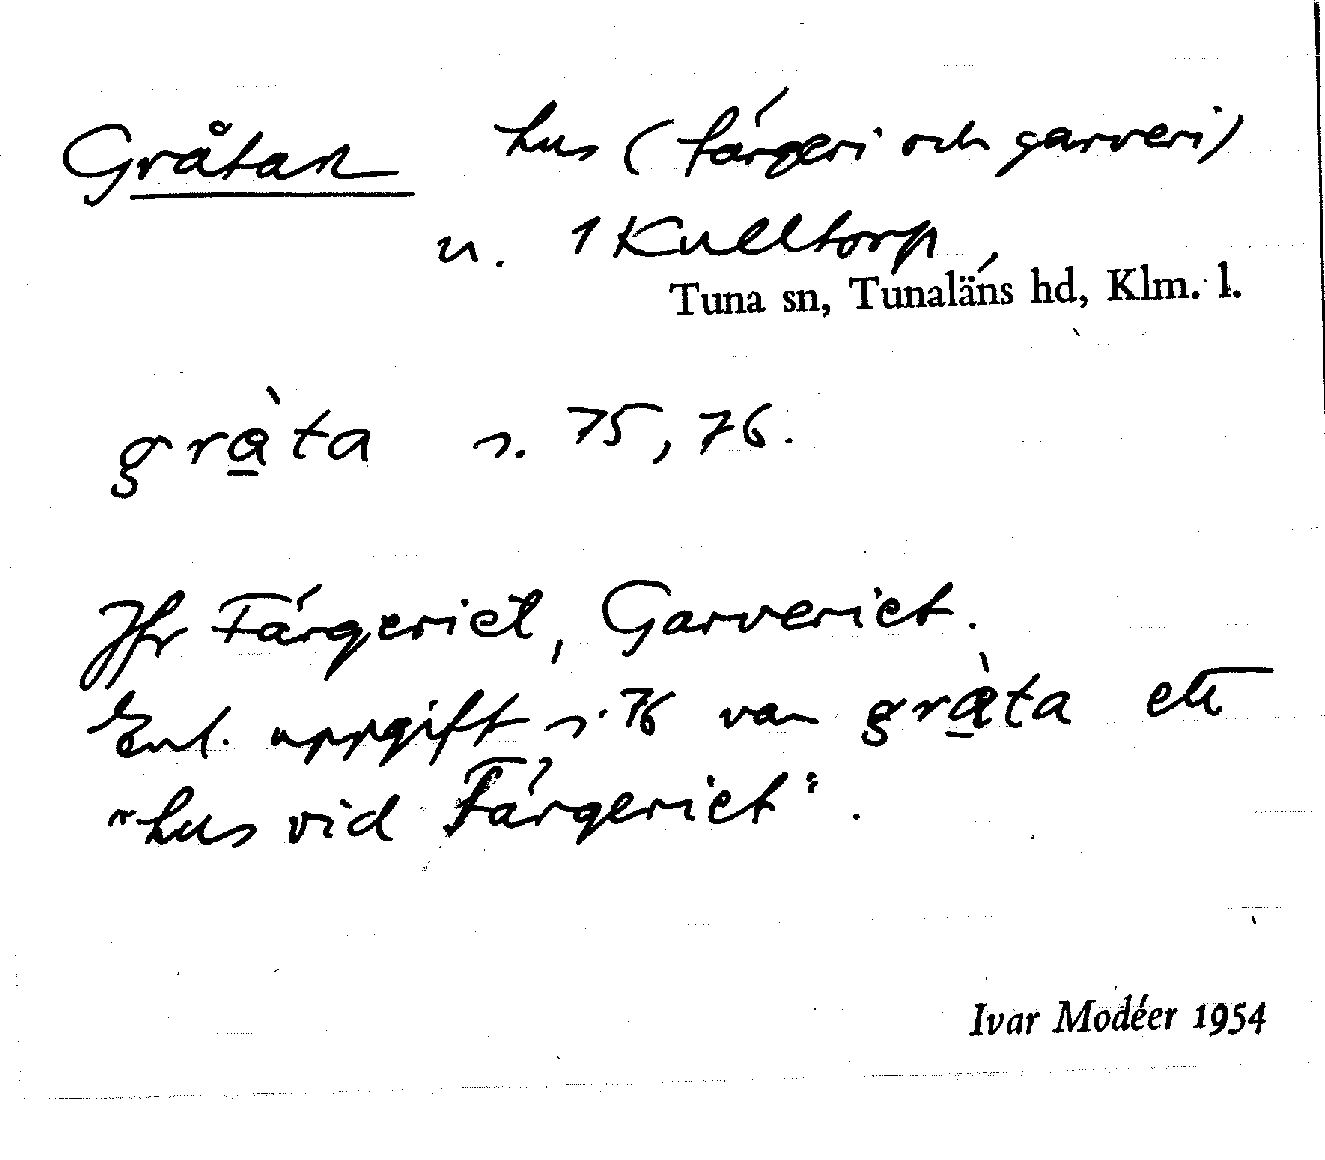 Gråtan hus (färgeri och garveri)
u. 1 Kulltorp,
Tuna sn, Tunaläns hd, Klm. l.
gràta s. 75, 76.
Jfr Färgeriet, Garveriet.
Enl. uppgift s. 76 var gràta ett
"hus vid Färgeriet".
Ivar Modéer 1954